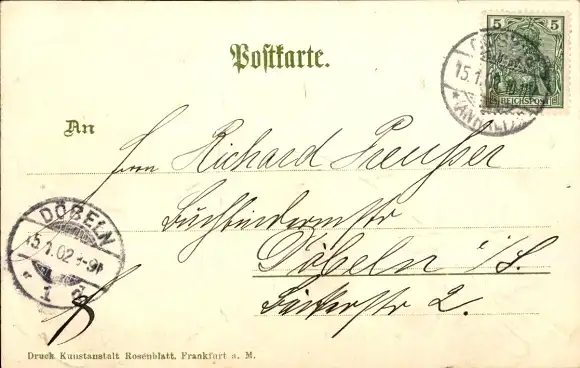 5 5
REICHSPOST
15.1.
(ANHALT)
Postkarte.
An
Herrn Richard Preusser
Buchbindermstr
Döbeln i/S.
Bäckerstr 2.
DÖBELN
15.1.02.
* 1
Druck Kunstanstalt Rosenblatt, Frankfurt a. M.